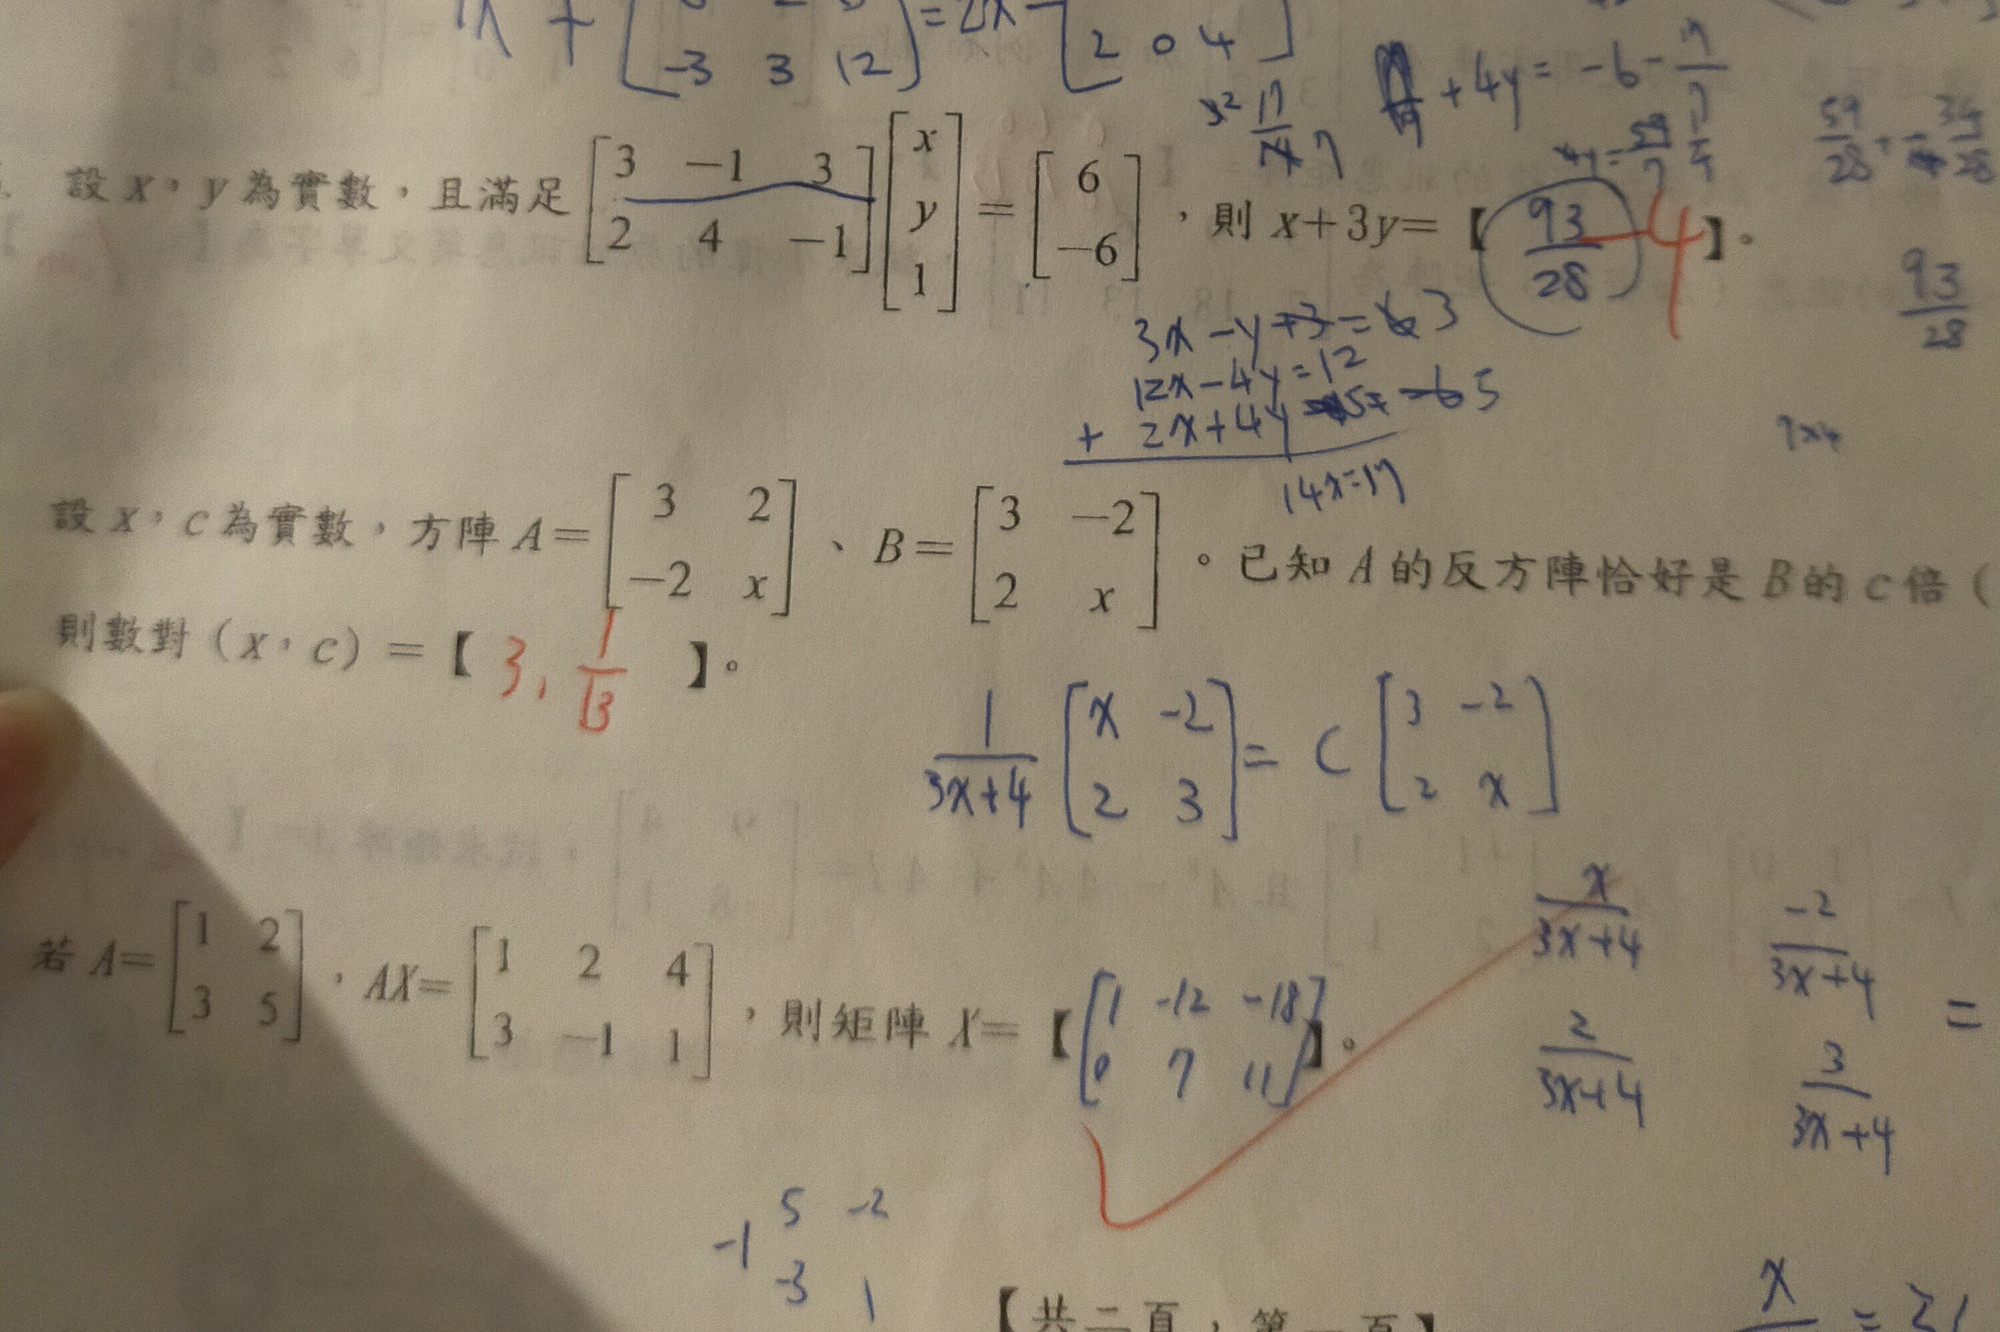 -3 3 12 = 2x 2 0 4
+ 4y = -6 -
設 x，y 為實數，且滿足 [3 -1 3; 2 4 -1] [x; y; 1] = [6; -6]，則 x+3y=【 93/28 4 】。
93/28
3x - y +3 = 6 3
12x - 4y = 12
+ 2x + 4y = -6 5
14x = 17
設 x，c 為實數，方陣 A= [3 2; -2 x]、B= [3 -2; 2 x]。已知 A 的反方陣恰好是 B 的 c 倍（
則數對（x，c）=【 3, 1/13 】。
1/(3x+4) [x -2; 2 3] = C [3 -2; 2 x]
x/(3x+4) -2/(3x+4)
2/(3x+4) 3/(3x+4) =
若 A= [1 2; 3 5]，AX= [1 2 4; 3 -1 1]，則矩陣 X=【 [1 -12 -18; 0 7 11] 】。
-1 5 -2
-3 1
【共二頁，第一頁】